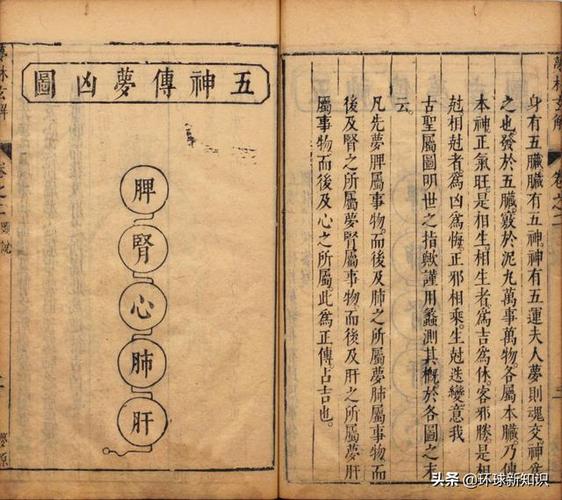 夢林玄解
卷之二
身有五臟臟有五神神有五運夫人夢則魂交神
之也發於五臟竅於泥九萬事萬物各屬本臟乃傳
本神正氣旺是相生相生者爲吉爲休客邪勝是相
尅相尅者爲凶爲悔正邪相乘生尅迭變意我
古聖屬圖明世之指歟謹用蠡測其槪於各圖之末
云
凡先夢脾屬事物而後及肺之所屬夢肺屬事物而
後及腎之所屬夢腎屬事物而後及肝之所屬夢肝
屬事物而後及心之所屬此爲正傳占吉也
五神傳夢凶圖
脾
腎
心
肺
肝
夢林玄解
卷之二
圖說
夢原
头条 @环球新知识